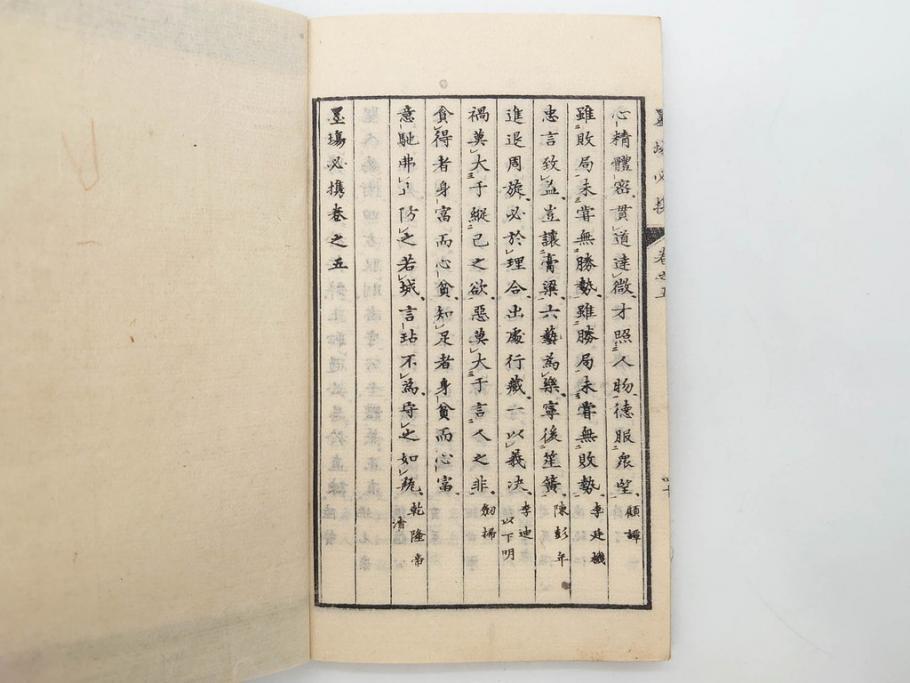 心精體密貫道達微才照人物德服衆望 顧譚
雖敗局未嘗無勝勢雖勝局未嘗無敗勢 李廷機
忠言致益豈讓膏粱六藝為樂寧後笙簧 陳彭年
進退周旋必於理合出處行藏一以義決 李迪 以下明
禍莫大于縱己之欲惡莫大于言人之非 劔掃
貪得者身富而心貧知足者身貧而心富
意馳弗之防之若城言玷不為守之如瓶 乾隆帝 清
墨場必携卷之五
墨場必携 卷之五 四十